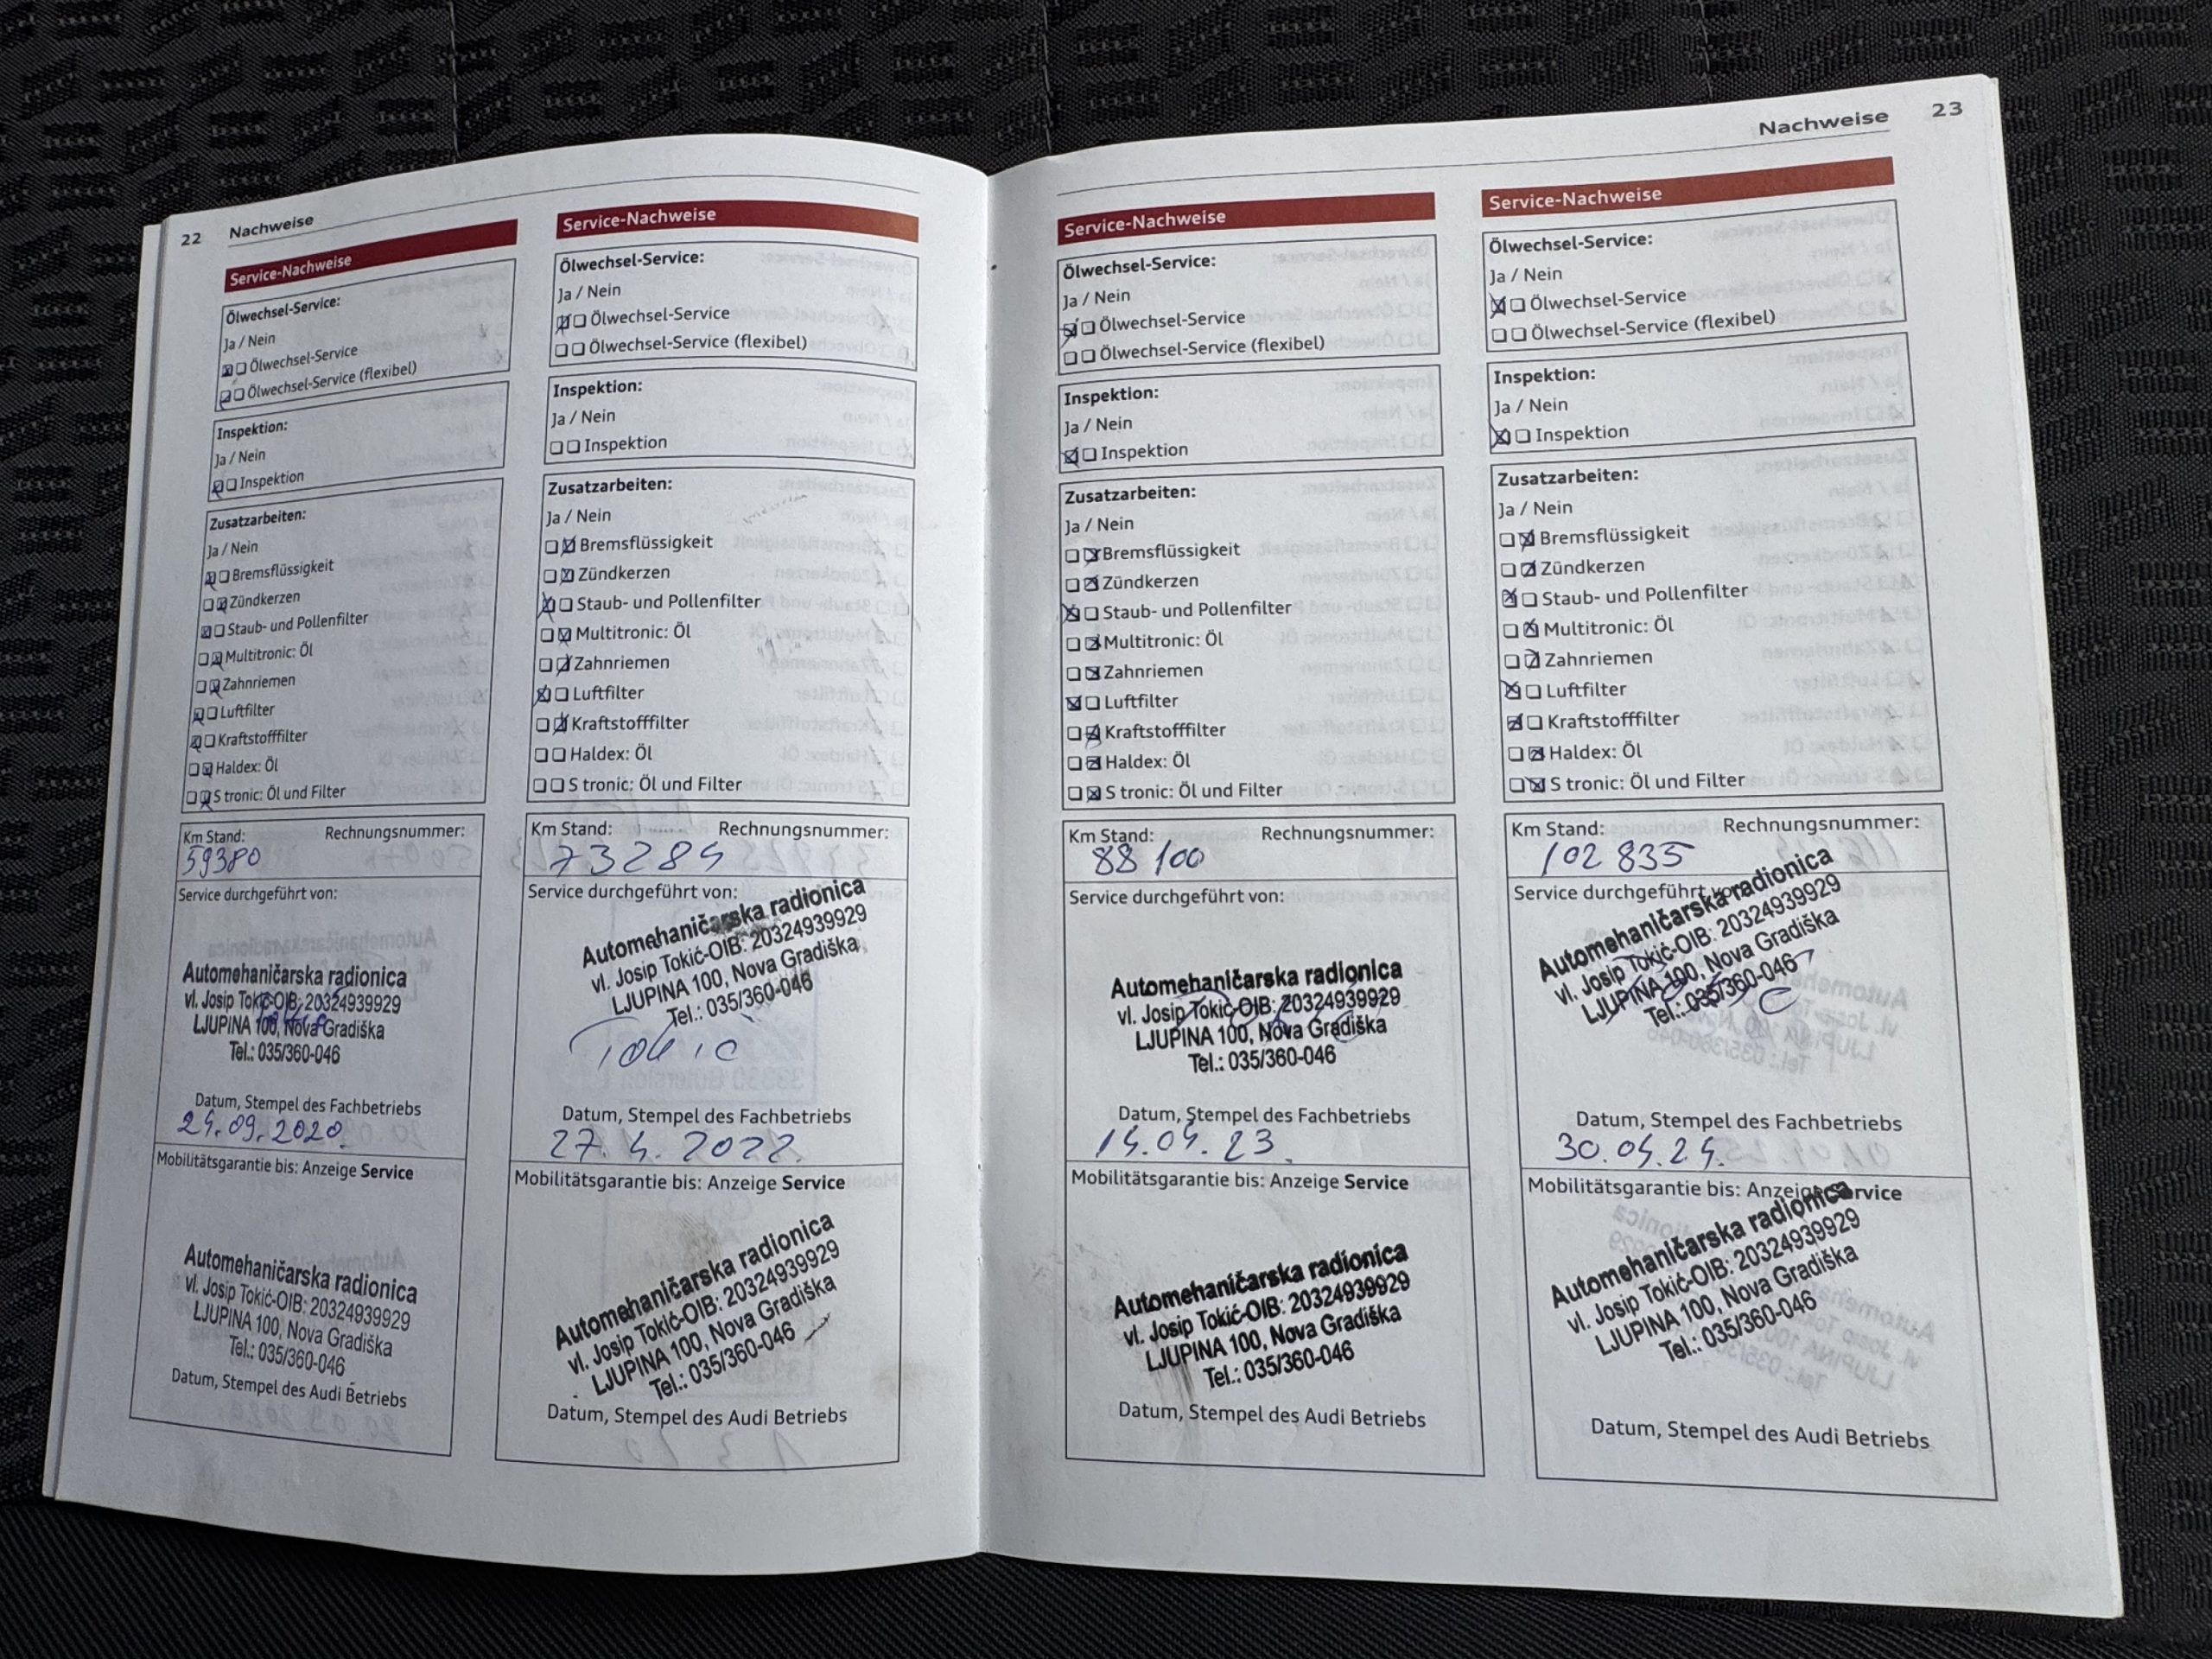 22 Nachweise
Service-Nachweise
Ölwechsel-Service:
Ja / Nein
Ölwechsel-Service
Ölwechsel-Service (flexibel)
Inspektion:
Ja / Nein
Inspektion
Zusatzarbeiten:
Ja / Nein
Bremsflüssigkeit
Zündkerzen
Staub- und Pollenfilter
Multitronic: Öl
Zahnriemen
Luftfilter
Kraftstofffilter
Haldex: Öl
S tronic: Öl und Filter
Km Stand: Rechnungsnummer:
59380
Service durchgeführt von:
Automehaničarska radionica
vl. Josip Tokić-OIB: 20324939929
LJUPINA 100, Nova Gradiška
Tel.: 035/360-046
Datum, Stempel des Fachbetriebs
24.09.2020.
Mobilitätsgarantie bis: Anzeige Service
Automehaničarska radionica
vl. Josip Tokić-OIB: 20324939929
LJUPINA 100, Nova Gradiška
Tel.: 035/360-046
Datum, Stempel des Audi Betriebs
Service-Nachweise
Ölwechsel-Service:
Ja / Nein
Ölwechsel-Service
Ölwechsel-Service (flexibel)
Inspektion:
Ja / Nein
Inspektion
Zusatzarbeiten:
Ja / Nein
Bremsflüssigkeit
Zündkerzen
Staub- und Pollenfilter
Multitronic: Öl
Zahnriemen
Luftfilter
Kraftstofffilter
Haldex: Öl
S tronic: Öl und Filter
Km Stand: Rechnungsnummer:
73284
Service durchgeführt von:
Automehaničarska radionica
vl. Josip Tokić-OIB: 20324939929
LJUPINA 100, Nova Gradiška
Tel.: 035/360-046
Tokić
Datum, Stempel des Fachbetriebs
27.4.2022.
Mobilitätsgarantie bis: Anzeige Service
Automehaničarska radionica
vl. Josip Tokić-OIB: 20324939929
LJUPINA 100, Nova Gradiška
Tel.: 035/360-046
Datum, Stempel des Audi Betriebs
Nachweise 23
Service-Nachweise
Ölwechsel-Service:
Ja / Nein
Ölwechsel-Service
Ölwechsel-Service (flexibel)
Inspektion:
Ja / Nein
Inspektion
Zusatzarbeiten:
Ja / Nein
Bremsflüssigkeit
Zündkerzen
Staub- und Pollenfilter
Multitronic: Öl
Zahnriemen
Luftfilter
Kraftstofffilter
Haldex: Öl
S tronic: Öl und Filter
Km Stand: Rechnungsnummer:
88100
Service durchgeführt von:
Automehaničarska radionica
vl. Josip Tokić-OIB: 20324939929
LJUPINA 100, Nova Gradiška
Tel.: 035/360-046
Datum, Stempel des Fachbetriebs
14.04.23.
Mobilitätsgarantie bis: Anzeige Service
Automehaničarska radionica
vl. Josip Tokić-OIB: 20324939929
LJUPINA 100, Nova Gradiška
Tel.: 035/360-046
Datum, Stempel des Audi Betriebs
Service-Nachweise
Ölwechsel-Service:
Ja / Nein
Ölwechsel-Service
Ölwechsel-Service (flexibel)
Inspektion:
Ja / Nein
Inspektion
Zusatzarbeiten:
Ja / Nein
Bremsflüssigkeit
Zündkerzen
Staub- und Pollenfilter
Multitronic: Öl
Zahnriemen
Luftfilter
Kraftstofffilter
Haldex: Öl
S tronic: Öl und Filter
Km Stand: Rechnungsnummer:
102 835
Service durchgeführt von:
Automehaničarska radionica
vl. Josip Tokić-OIB: 20324939929
LJUPINA 100, Nova Gradiška
Tel.: 035/360-046
Datum, Stempel des Fachbetriebs
30.04.24.
Mobilitätsgarantie bis: Anzeige Service
Automehaničarska radionica
vl. Josip Tokić-OIB: 20324939929
LJUPINA 100, Nova Gradiška
Tel.: 035/360-046
Datum, Stempel des Audi Betriebs